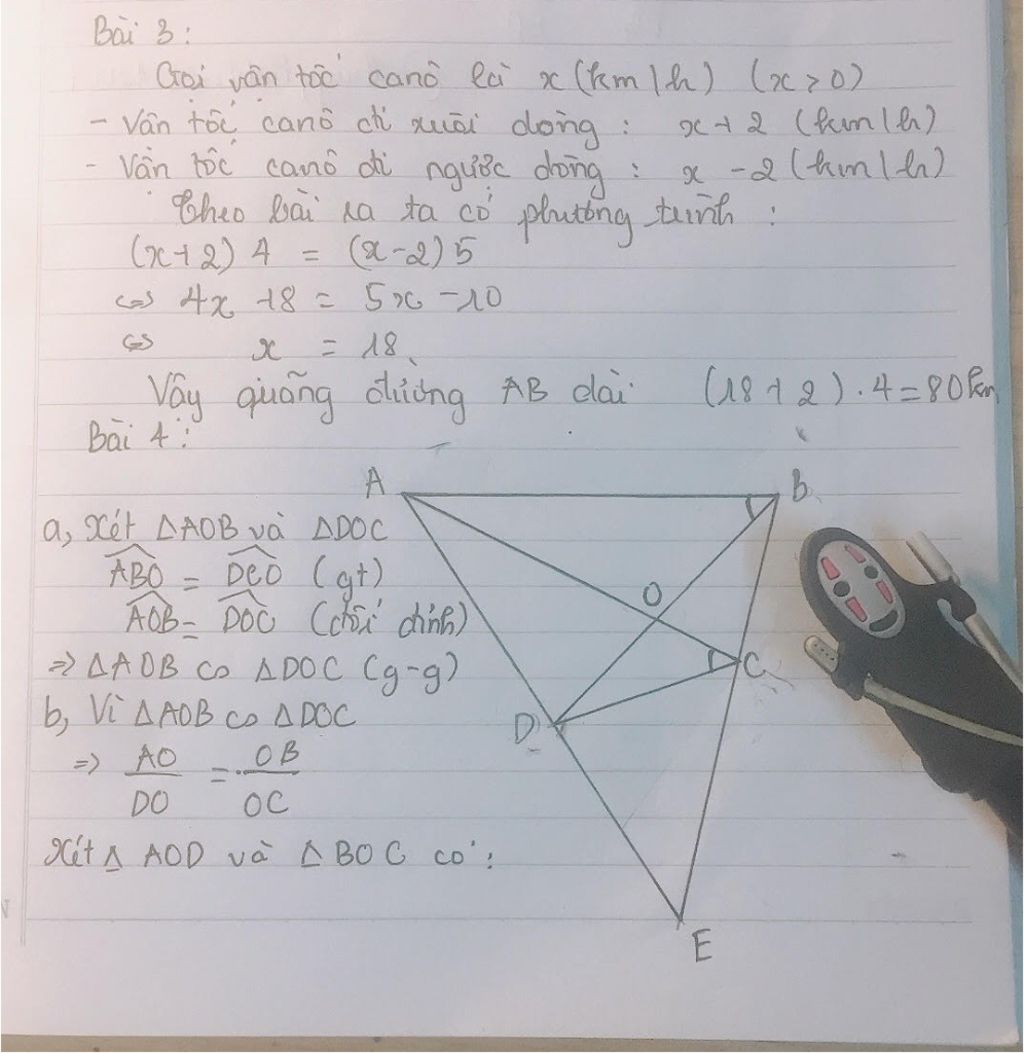 Bài 3:
Gọi vận tốc canô là x (km/h) (x > 0)
- Vận tốc canô đi xuôi dòng : x + 2 (km/h)
- Vận tốc canô đi ngược dòng : x - 2 (km/h)
Theo bài ra ta có phương trình :
(x+2) 4 = (x-2) 5
<=> 4x + 8 = 5x - 10
<=> x = 18
Vậy quãng đường AB dài (18 + 2) . 4 = 80 km
Bài 4 :
A
B
a, Xét ΔAOB và ΔDOC
\widehat{ABO} = \widehat{DCO} (gt)
O
\widehat{AOB} = \widehat{DOC} (đối đỉnh)
=> ΔAOB ∽ ΔDOC (g-g)
C
b, Vì ΔAOB ∽ ΔDOC
D
=> AO/DO = OB/OC
Xét Δ AOD và Δ BOC có :
E